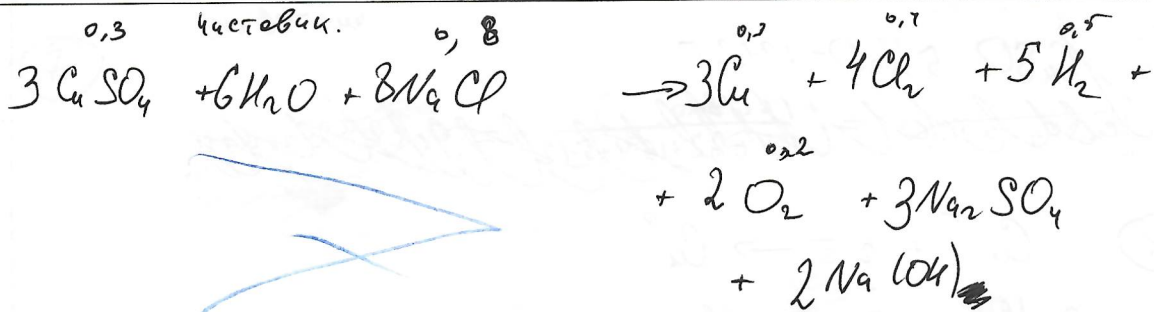 0,3 чистовик. 0,8
3 CuSO₄ + 6H₂O + 8NaCl → 3Cu + 4Cl₂ + 5H₂ +
+ 2O₂ + 3Na₂SO₄
+ 2Na(OH)